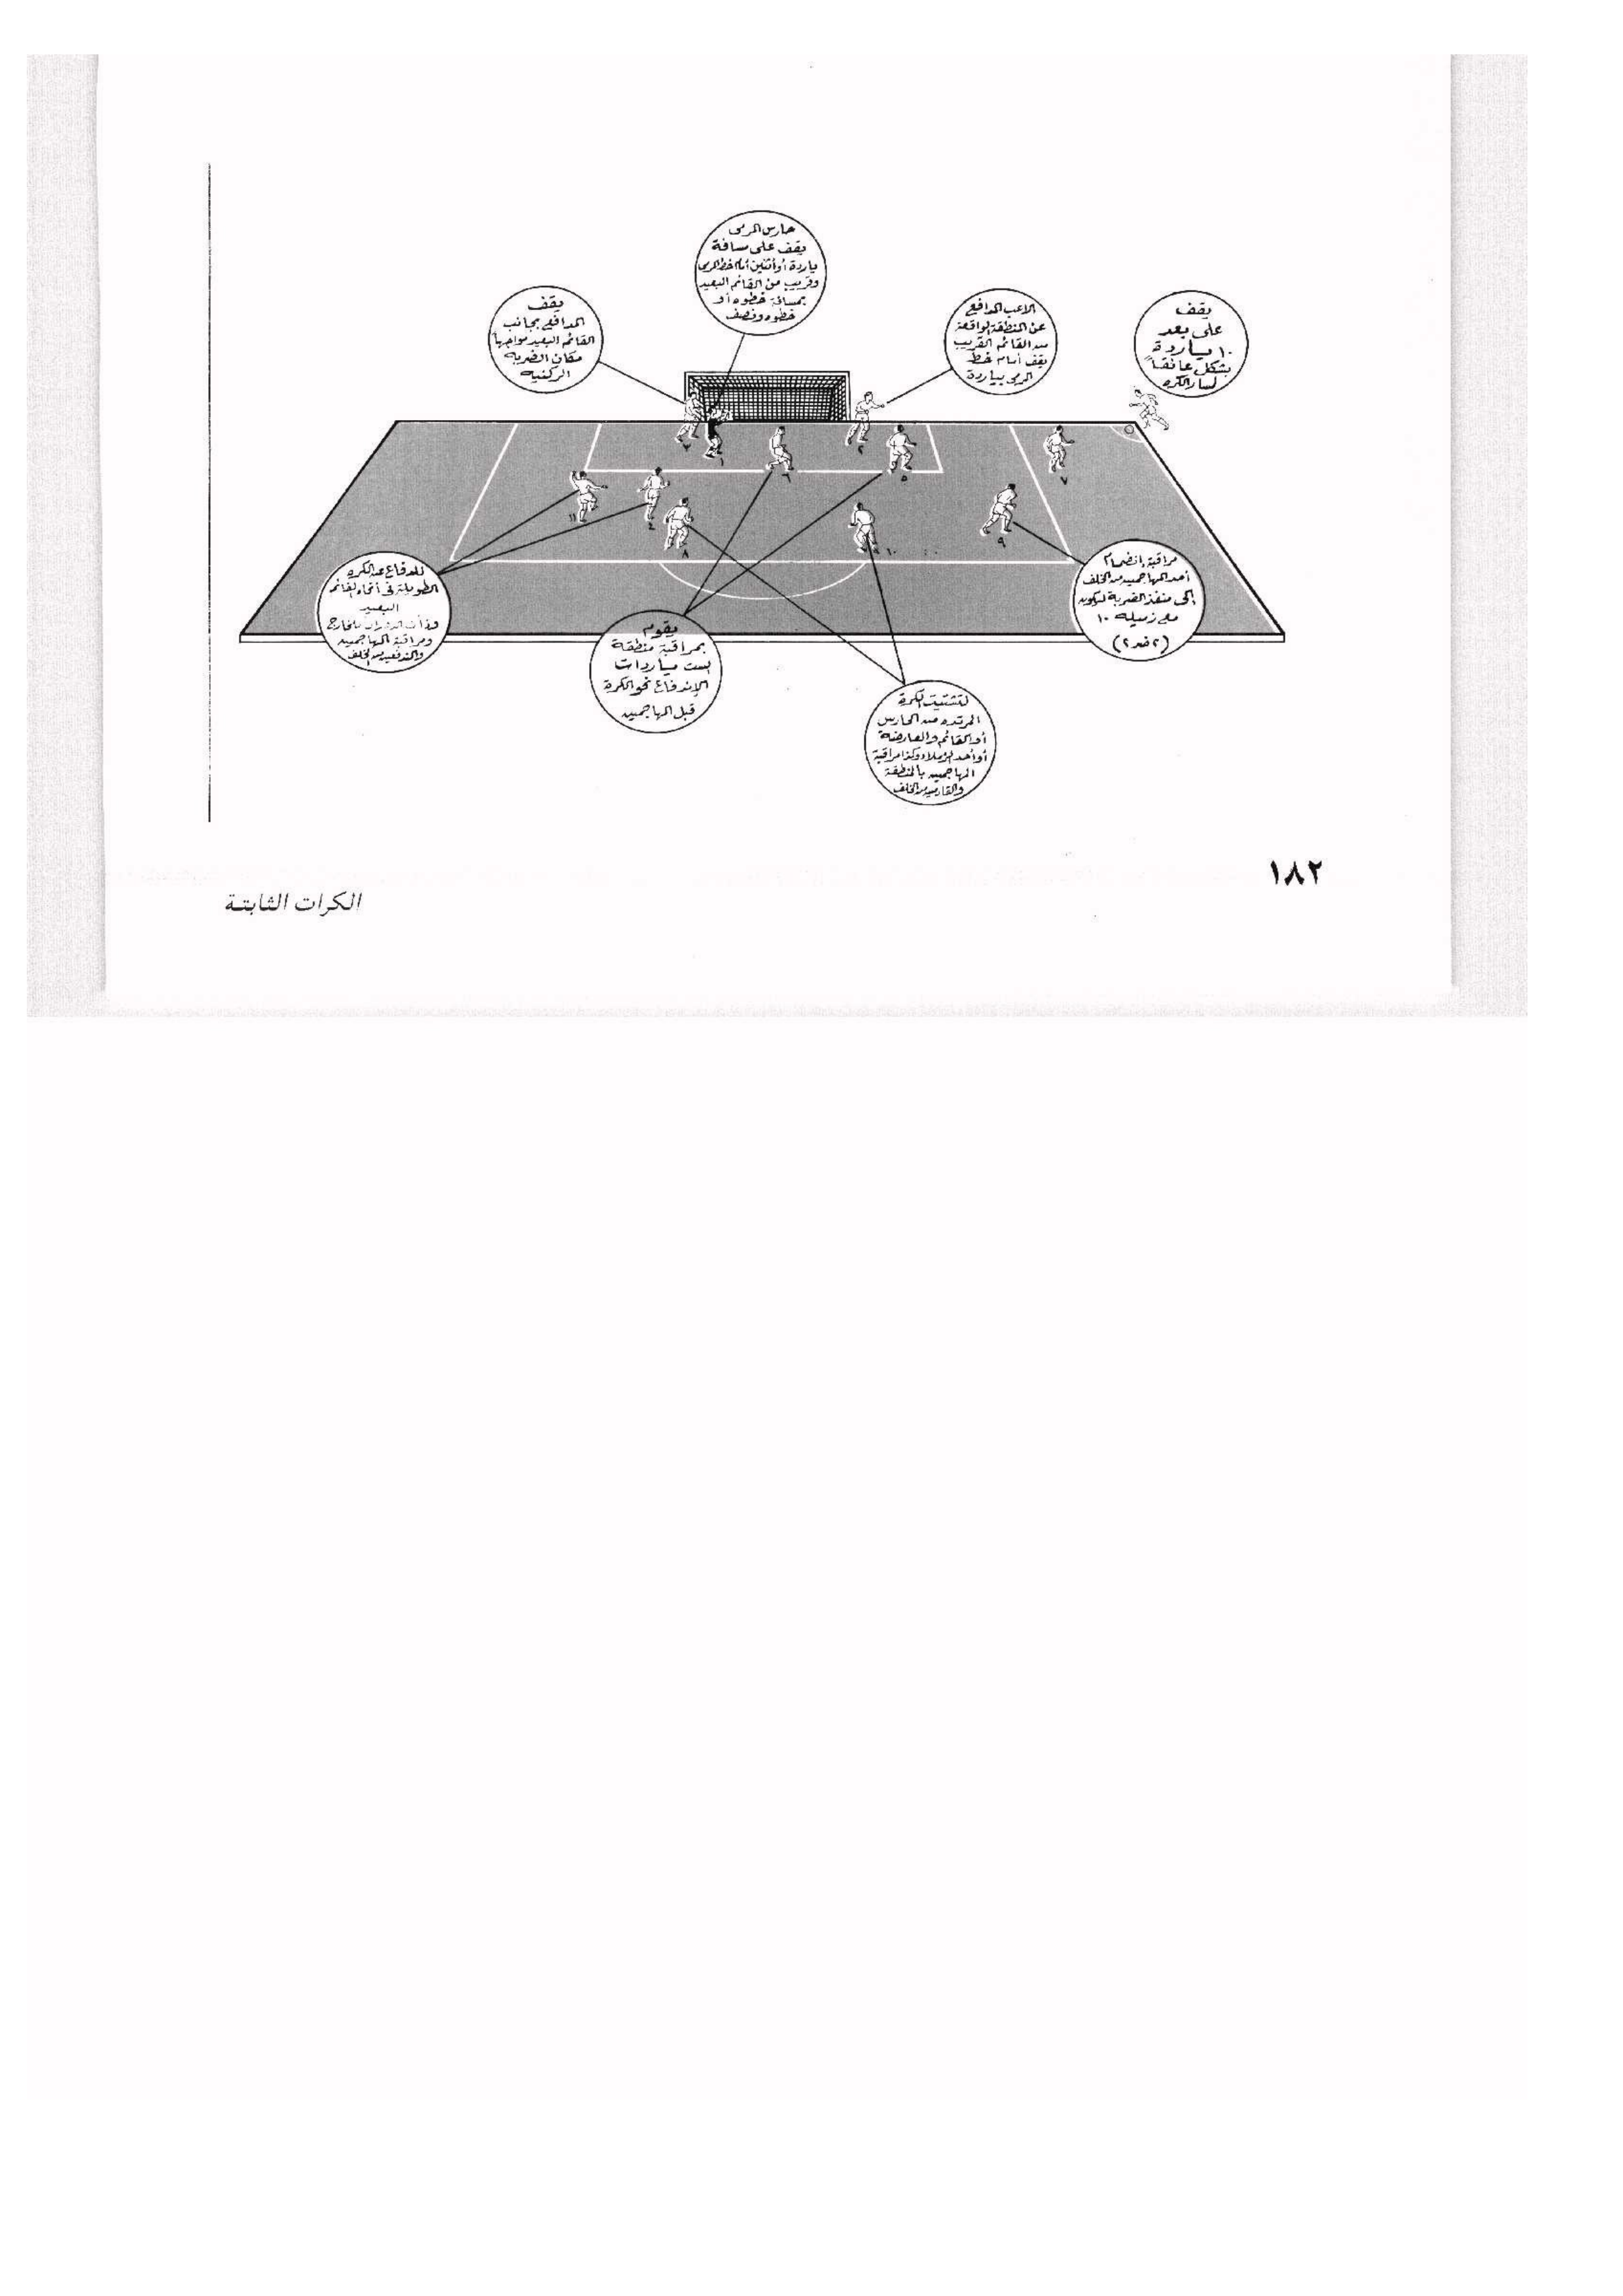 حارس المرمى
يقف على مسافة
ياردة أو أثنين أمام خط المرمى
وقريب من القائم البعيد
بمسافة خطوه أو
خطوه ونصف
يقف
المدافع بجانب
القائم البعيد مواجها
مكان الضربه
الركنيه
الاعب المدافع
عن المنطقة الواقعة
عند القائم القريب
يقف أمام خط
المرمى بياردة
يقف
على بعد
١٠ ياردة
بشكل عائقا"
لسار الكره
٣
١
٦
٢
٥
٧
١١
٤
٨
١٠
٩
للدفاع عن الكره
الطويلة فى أتجاه القائم
البعيد
للخارج
ومراقبة المهاجمين
من الخلف
يقوم
بمراقبة منطقة
الست ياردات
الإندفاع نحو الكرة
قبل المهاجمين
لتشتيت الكرة
المرتده من الحارس
أو القائم والعارضة
أو أحد الزملاء وكذا مراقبة
المهاجمين بالمنطقة
والقادمين من الخلف
مراقبة إنضمام
أحد المهاجمين من الخلف
إلى منفذ الضربة ليكون
مع زميله ١٠
(٢ ضد ٢)
١٨٢
الكرات الثابتة